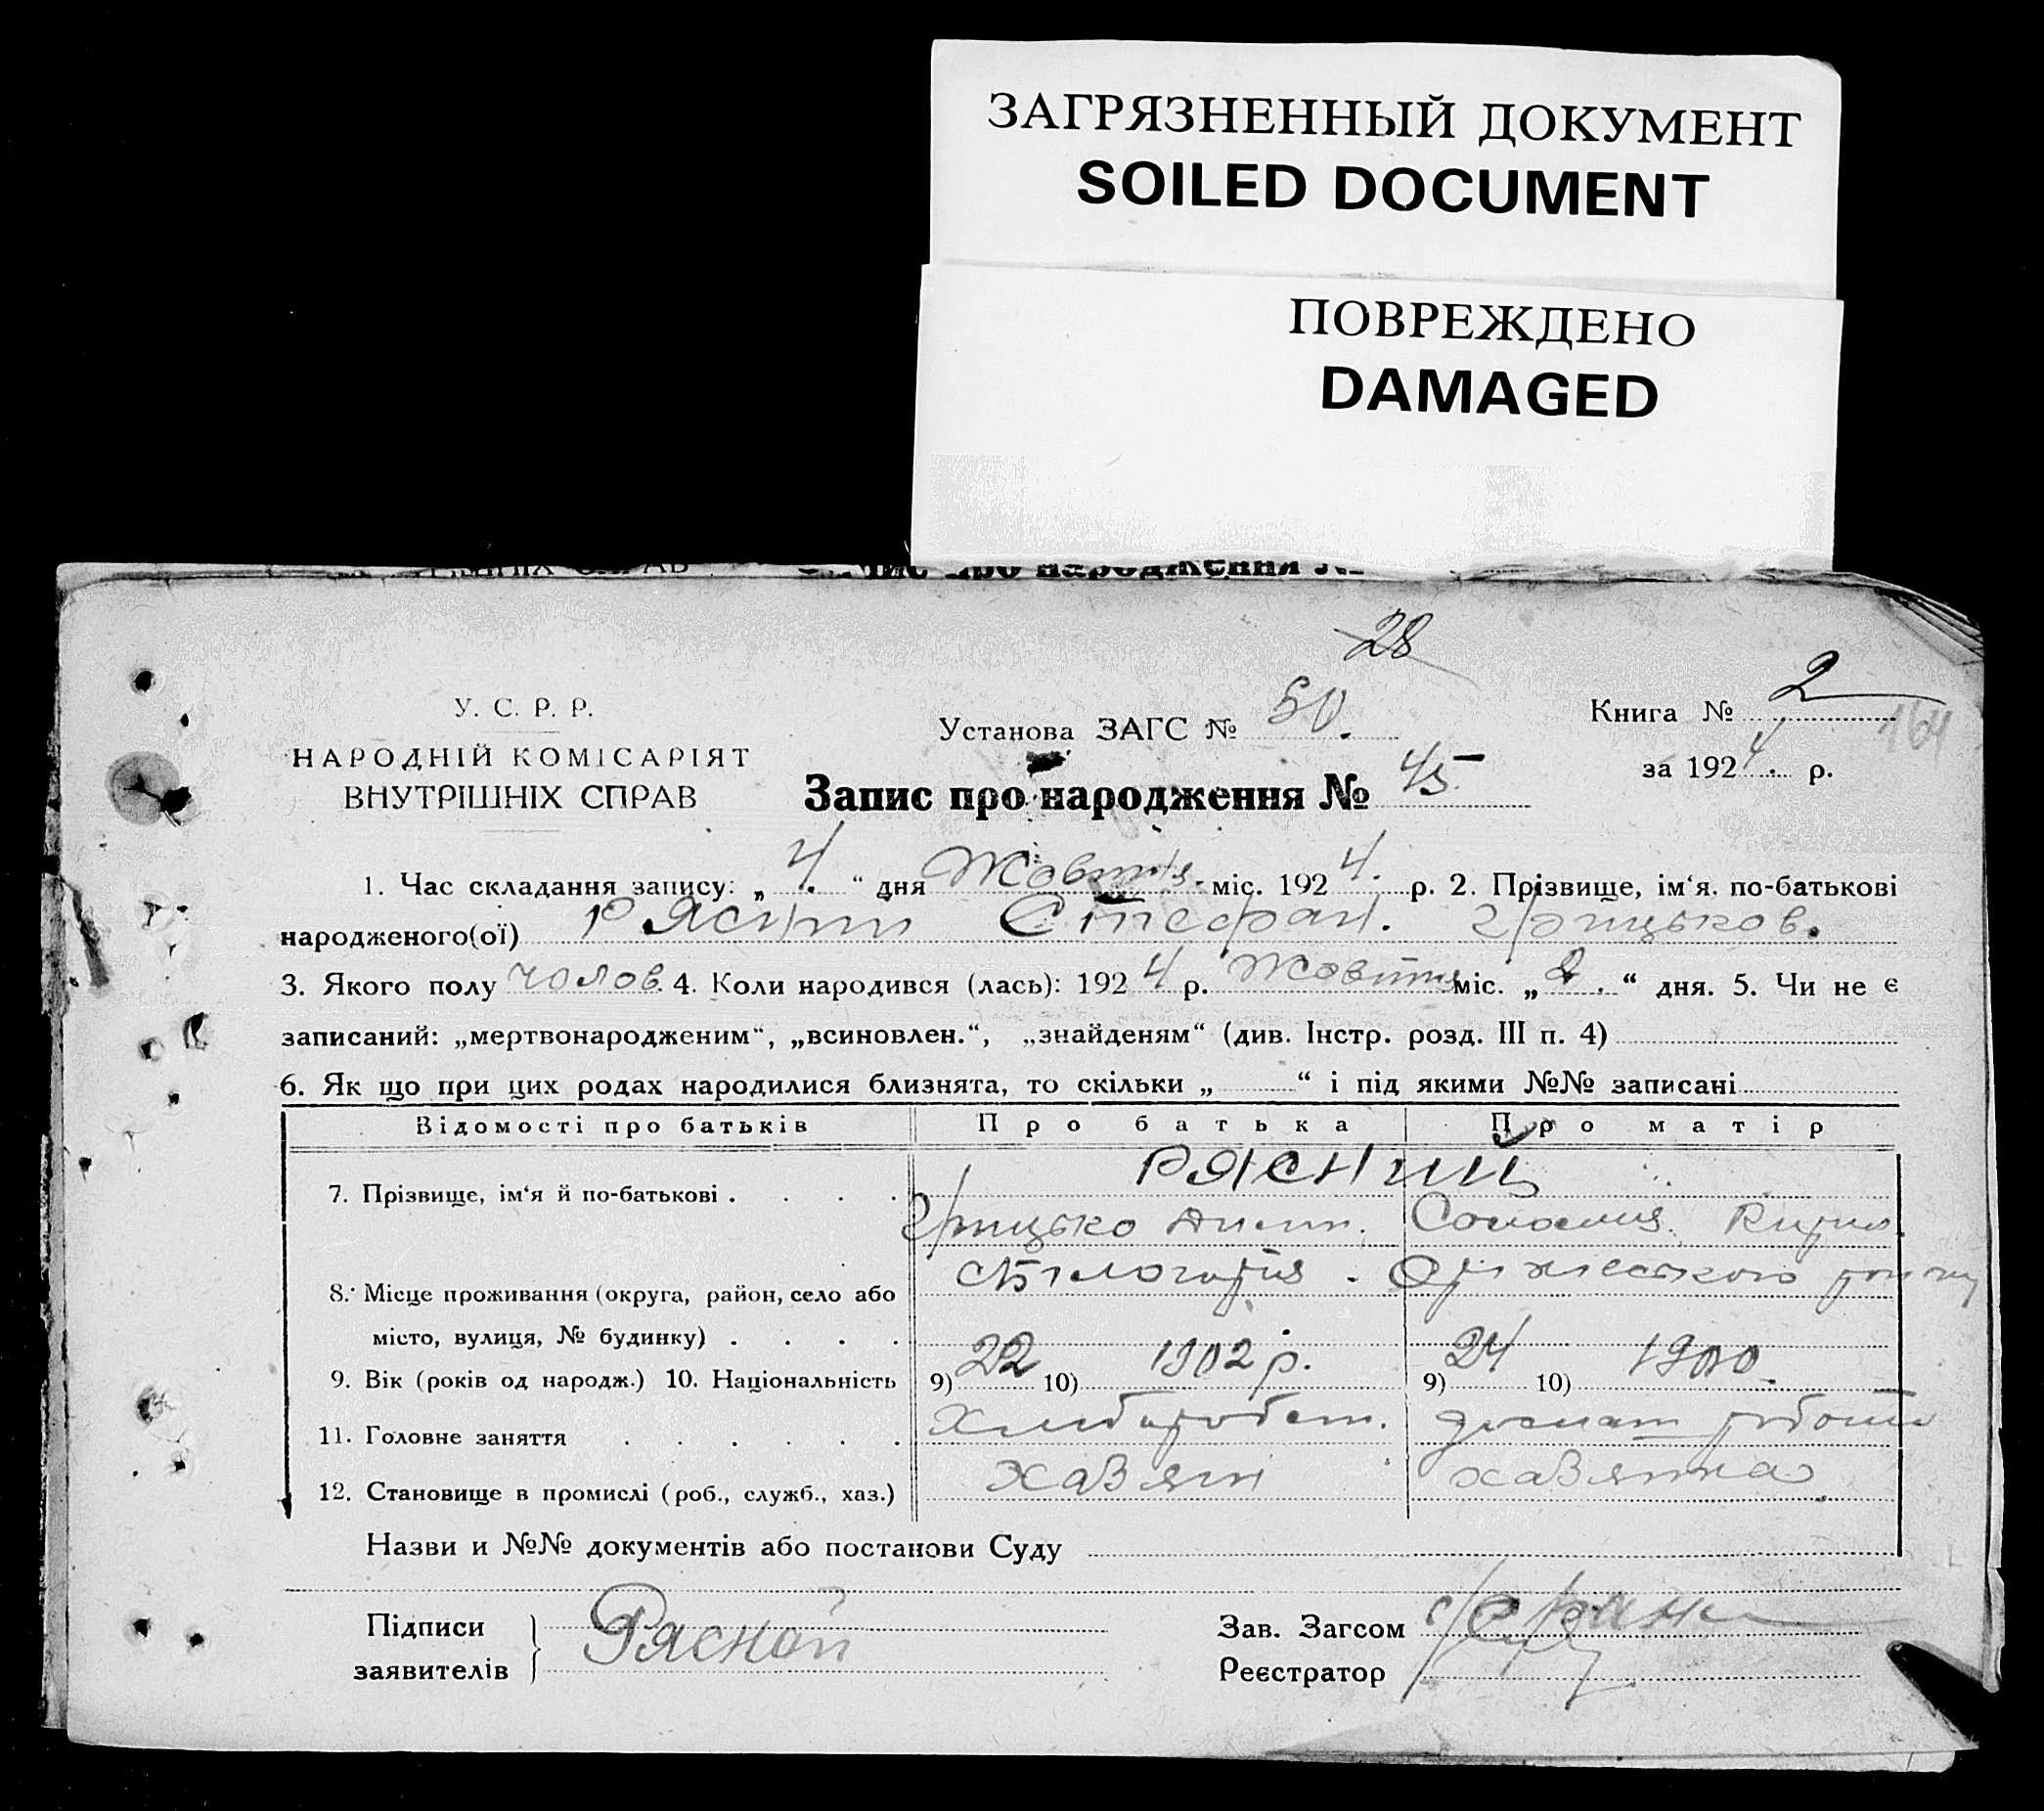 ЗАГРЯЗНЕННЫЙ ДОКУМЕНТ
SOILED DOCUMENT
ПОВРЕЖДЕНО
DAMAGED
28
У. С. Р. Р.
НАРОДНІЙ КОМІСАРІЯТ
ВНУТРІШНІХ СПРАВ
Установа ЗАГС № 50.
Книга № 2
164
за 1924. р.
Запис про народження № 45
1. Час складання запису: „4.“ дня Жовтня. міс. 1924. р. 2. Прізвище, ім‘я, по-батькові
народженого(ої) Рясний Стефан. Грицьков.
3. Якого полу чолов. 4. Коли народився (лась): 1924 р. Жовтня міс. „2.“ дня. 5. Чи не є
записаний: „мертвонародженим“, „всиновлен.“, „знайденям“ (див. Інстр. розд. III п. 4)
6. Як що при цих родах народилися близнята, то скільки „ “ і під якими №№ записані
Відомості про батьків Про батька Про матір
7. Прізвище, ім‘я й по-батькові . . . . Рясний
Грицько Соломия
8. Місце проживання (округа, район, село або
місто, вулиця, № будинку) . . . .
9. Вік (років од народж.) 10. Національність 9) 22 10) 1902 р. 9) 24 10) 1900.
11. Головне заняття . . . . . . Хлібороб робота
12. Становище в промислі (роб., служб., хаз.) хазяін хазяйка
Назви и №№ документів або постанови Суду
Підписи
заявителів Рясной
Зав. Загсом
Реєстратор